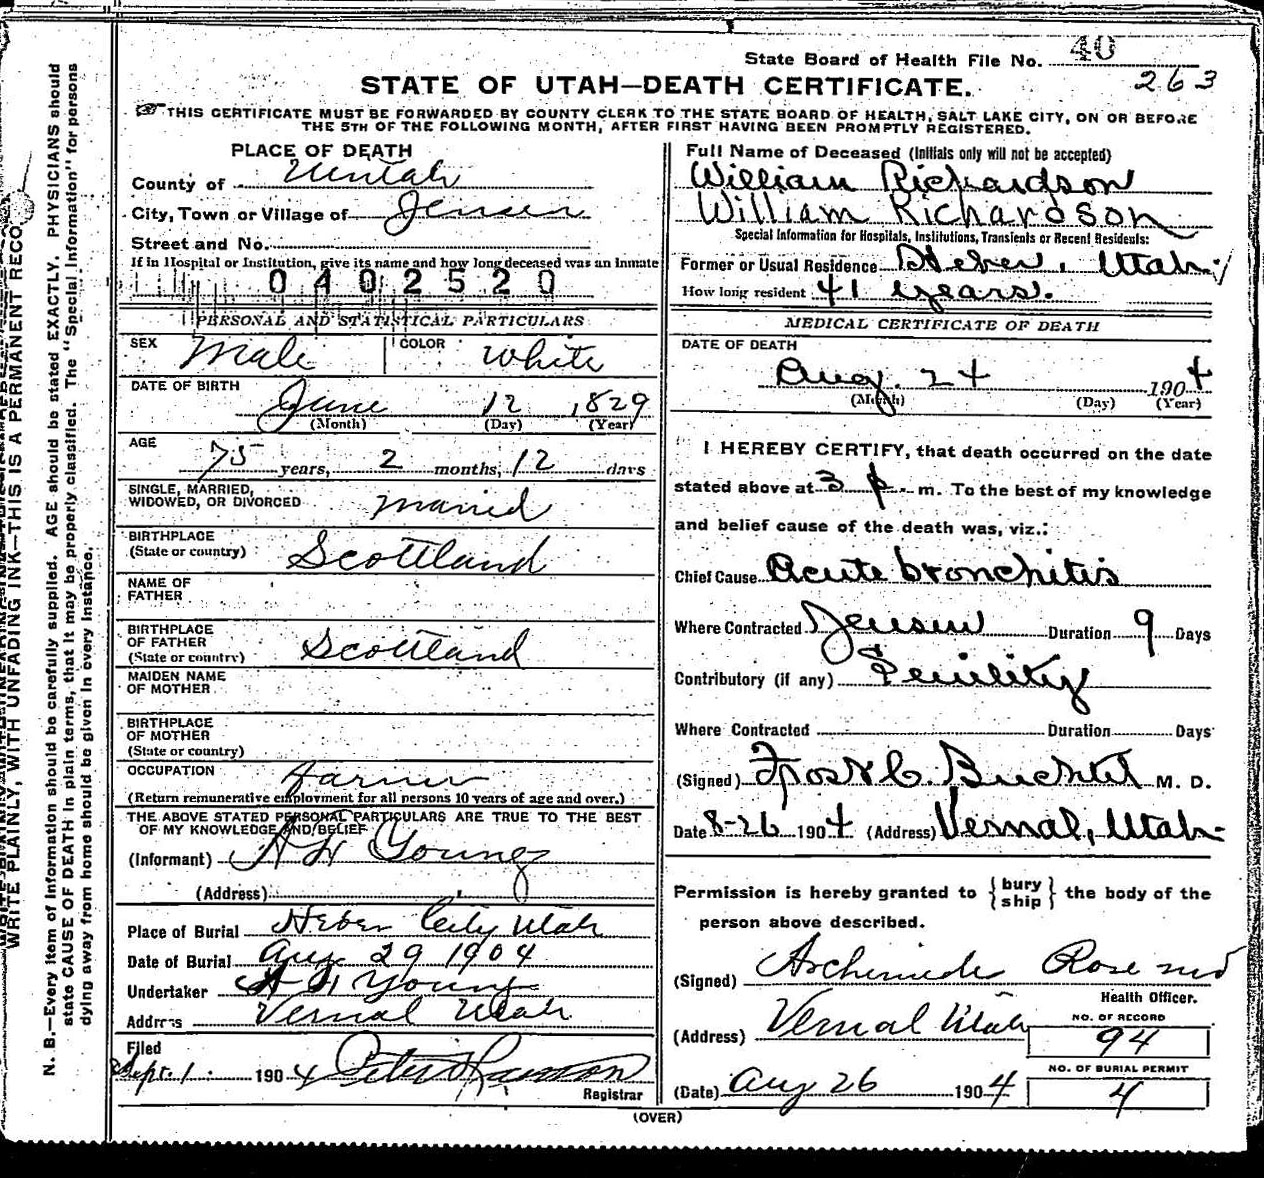 State Board of Health File No. 40
263
STATE OF UTAH—DEATH CERTIFICATE.
THIS CERTIFICATE MUST BE FORWARDED BY COUNTY CLERK TO THE STATE BOARD OF HEALTH, SALT LAKE CITY, ON OR BEFORE
THE 5TH OF THE FOLLOWING MONTH, AFTER FIRST HAVING BEEN PROMPTLY REGISTERED.
PLACE OF DEATH
County of Uintah
City, Town or Village of Jensen
Street and No.
If in Hospital or Institution, give its name and how long deceased was an Inmate
0402520
PERSONAL AND STATISTICAL PARTICULARS
SEX Male COLOR White
DATE OF BIRTH
June 12 1829
(Month) (Day) (Year)
AGE
75 years, 2 months, 12 days
SINGLE, MARRIED,
WIDOWED, OR DIVORCED Maried
BIRTHPLACE
(State or country) Scottland
NAME OF
FATHER
BIRTHPLACE
OF FATHER
(State or country) Scottland
MAIDEN NAME
OF MOTHER
BIRTHPLACE
OF MOTHER
(State or country)
OCCUPATION Farmer
(Return remunerative employment for all persons 10 years of age and over.)
THE ABOVE STATED PERSONAL PARTICULARS ARE TRUE TO THE BEST
OF MY KNOWLEDGE AND/BELIEF
(Informant) Young
(Address)
Place of Burial Heber City Utah
Date of Burial Aug 29 1904
Undertaker Young
Address Vernal Utah
Filed
Sept. 1 1904 Peter
Registrar
Full Name of Deceased (Initials only will not be accepted)
William Richardson
William Richardson
Special Information for Hospitals, Institutions, Transients or Recent Residents:
Former or Usual Residence Heber, Utah
How long resident 41 years.
MEDICAL CERTIFICATE OF DEATH
DATE OF DEATH
Aug. 24 1904
(Month) (Day) (Year)
I HEREBY CERTIFY, that death occurred on the date
stated above at 3 p. m. To the best of my knowledge
and belief cause of the death was, viz.:
Chief Cause Acute bronchitis
Where Contracted Jensen Duration 9 Days
Contributory (if any) Senility
Where Contracted Duration Days
(Signed) C. Buchtel M. D.
Date 8-26 1904 (Address) Vernal, Utah
Permission is hereby granted to {bury ship} the body of the
person above described.
(Signed) Archimedes Rose
Health Officer.
(Address) Vernal Utah
NO. OF RECORD
94
NO. OF BURIAL PERMIT
4
(Date) Aug 26 1904
(OVER)
N. B.—Every item of information should be carefully supplied. AGE should be stated EXACTLY. PHYSICIANS should
state CAUSE OF DEATH in plain terms, that it may be properly classified. The "Special Information" for persons
dying away from home should be given in every instance.
WRITE PLAINLY, WITH UNFADING INK—THIS IS A PERMANENT RECO